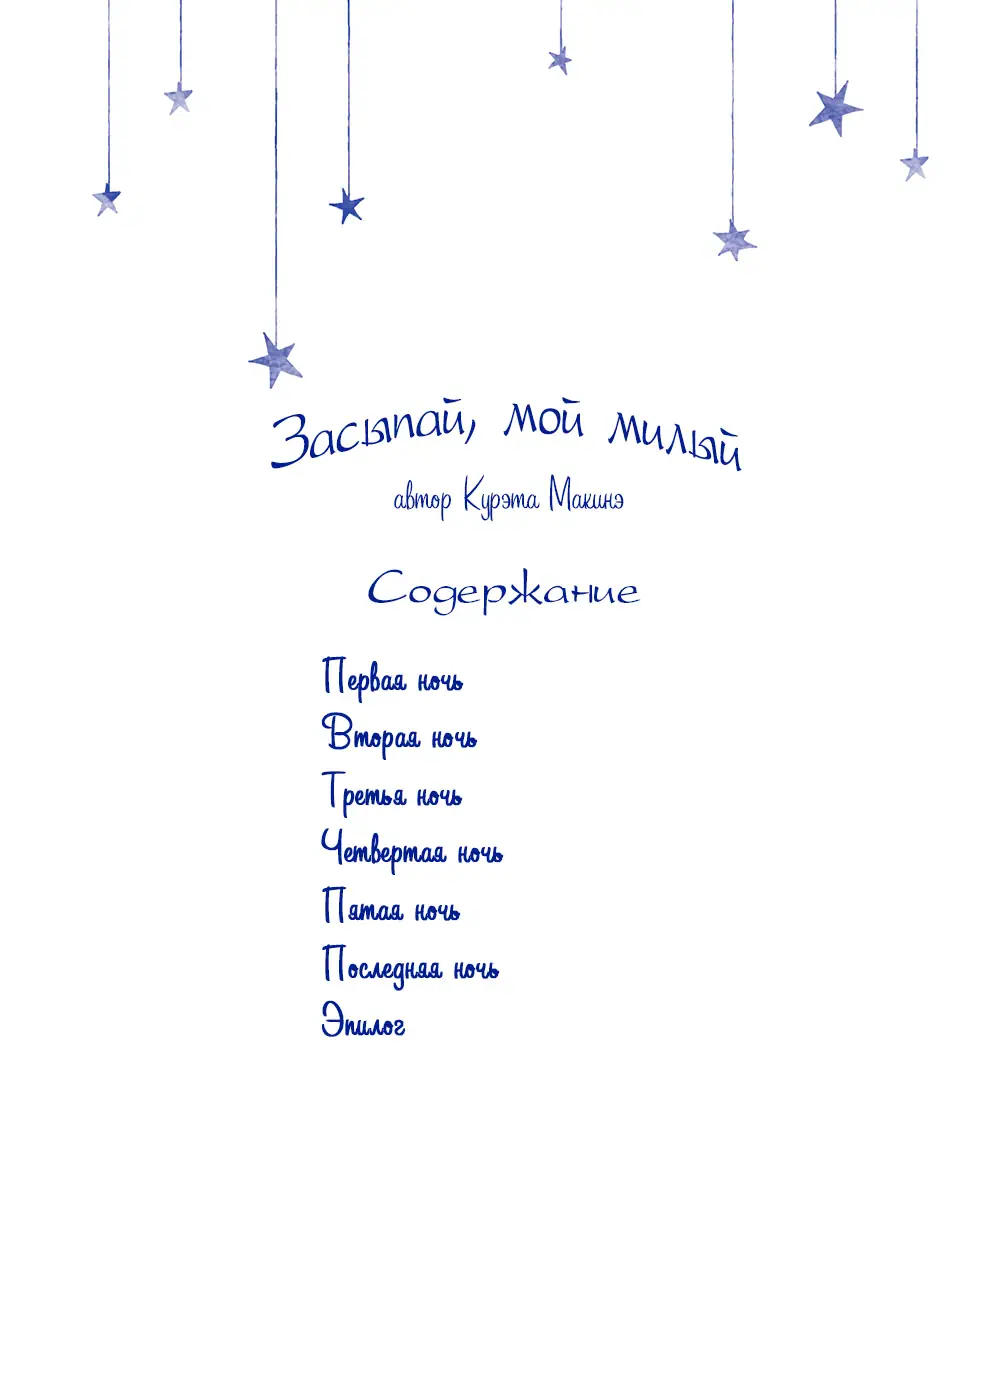 Засыпай, мой милый
автор Курэта Макинэ
Содержание
Первая ночь
Вторая ночь
Третья ночь
Четвертая ночь
Пятая ночь
Последняя ночь
Эпилог